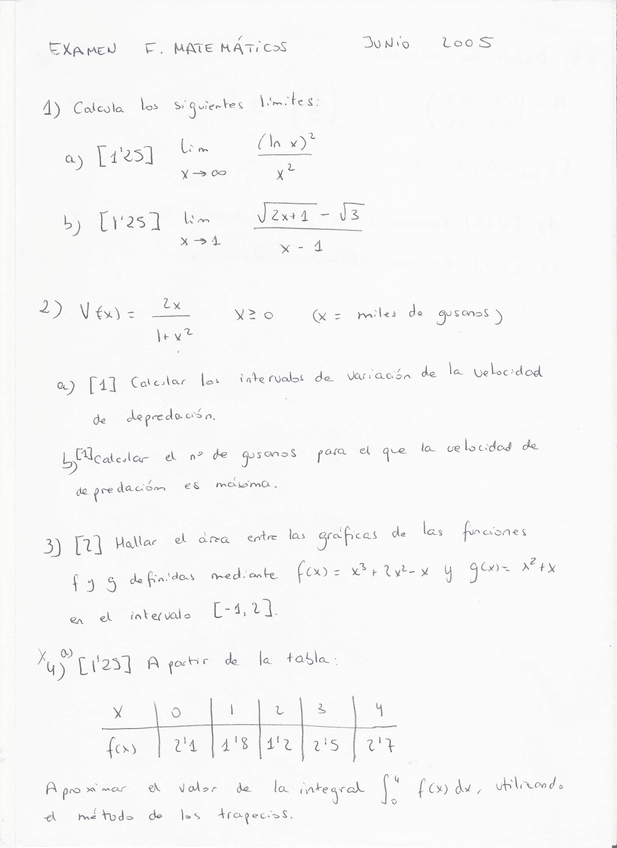 EXAMEN F. MATEMÁTICOS JUNIO 2005
1) Calcula los siguientes límites:
a) [1'25] lim x→∞ (ln x)² / x²
b) [1'25] lim x→1 (√(2x+1) - √3) / (x - 1)
2) V(x) = 2x / (1+x²) x ≥ 0 (x = miles de gusanos)
a) [1] Calcular los intervalos de variación de la velocidad
de depredación.
b) [1] Calcular el nº de gusanos para el que la velocidad de
depredación es máxima.
3) [2] Hallar el área entre las gráficas de las funciones
f y g definidas mediante f(x) = x³ + 2x² - x y g(x) = x² + x
en el intervalo [-1, 2].
x 4) a) [1'25] A partir de la tabla:
x 0 1 2 3 4
f(x) 2'1 1'8 1'2 2'5 2'7
Aproximar el valor de la integral ∫₀⁴ f(x) dx, utilizando
el método de los trapecios.